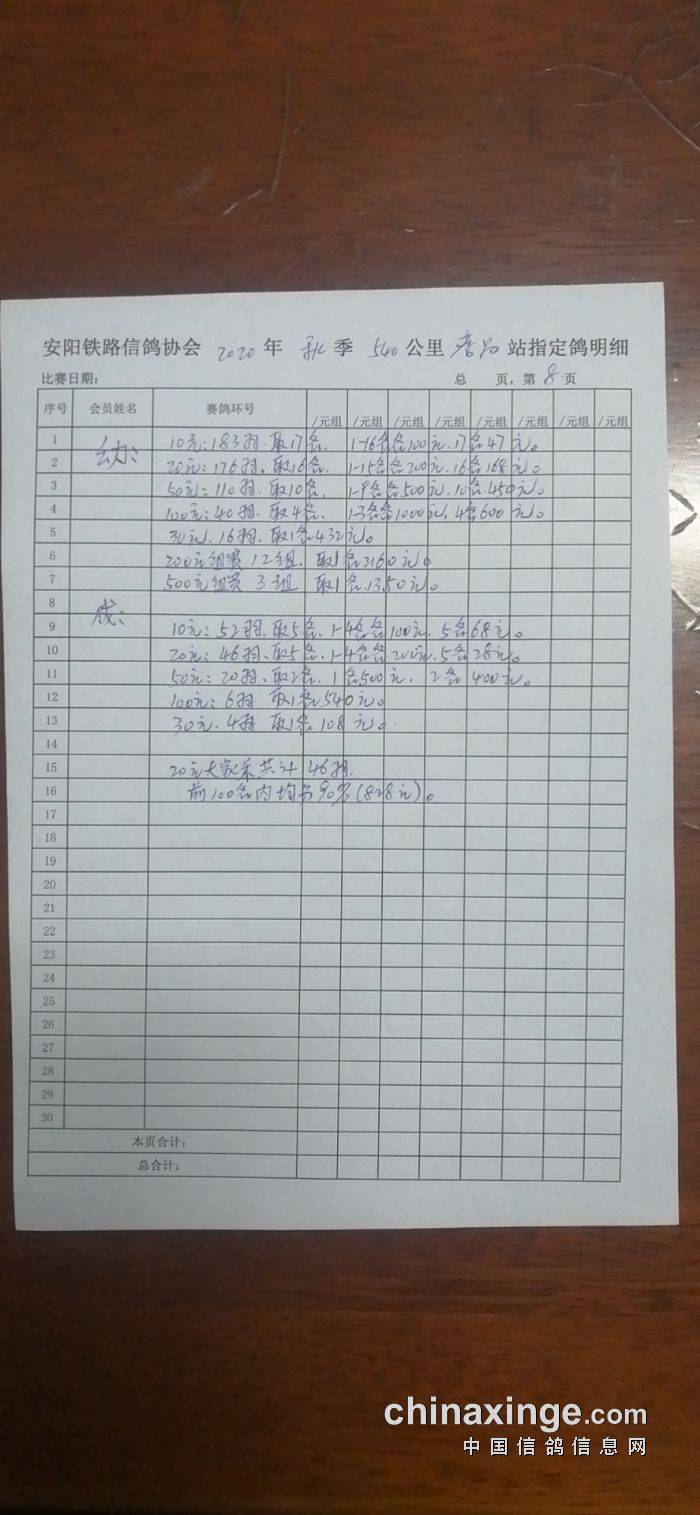 安阳铁路信鸽协会 2020 年 秋 季 540 公里 站指定鸽明细
比赛日期: 总 页,第 8 页
序号 会员姓名 赛鸽环号 /元组 /元组 /元组 /元组 /元组 /元组 /元组 /元组
1 幼: 10元:183羽.取17名. 1-16名各100元.17名47元。
2 20元:176羽、取16名. 1-15名各200元.16名168元。
3 50元:110羽.取10名. 1-9名各500元.10名.450元。
4 100元:40羽.取4名. 1-3名各1000元.4名600元。
5 30元.16羽.取1名432元。
6 200元组赛12组.取1名2160元。
7 500元组赛 3组 取1名.1350元。
8 成:
9 10元:52羽.取5名.1-4名各100元.5名68元。
10 20元:46羽、取5名.1-4名各200元.5名28元。
11 50元:20羽、取2名.1名500元.2名400元。
12 100元:6羽 取1名540元。
13 30元.4羽 取1名.108元。
14
15 20元大家乐共计46羽.
16 前100名内均分90%(828元)。
17
18
19
20
21
22
23
24
25
26
27
28
29
30
本页合计:
总合计:
chinaxinge.com
中国信鸽信息网